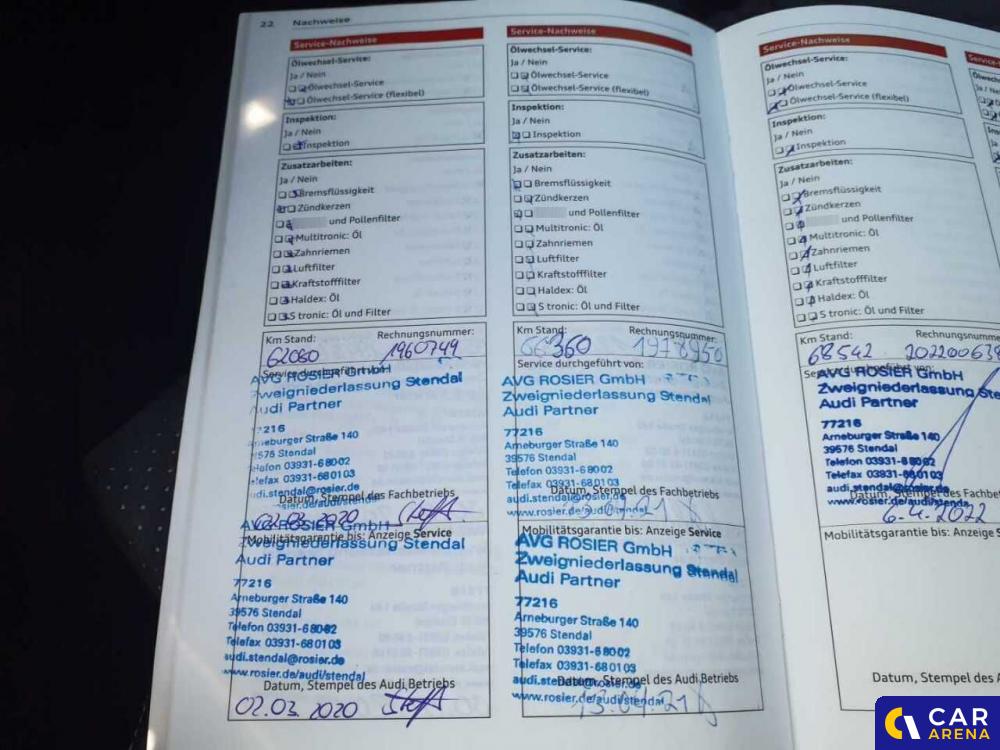 22 Nachweise
Service-Nachweise
Ölwechsel-Service:
Ja / Nein
Ölwechsel-Service
Ölwechsel-Service (flexibel)
Inspektion:
Ja / Nein
Inspektion
Zusatzarbeiten:
Ja / Nein
Bremsflüssigkeit
Zündkerzen
und Pollenfilter
Multitronic: Öl
Zahnriemen
Luftfilter
Kraftstofffilter
Haldex: Öl
S tronic: Öl und Filter
Km Stand: Rechnungsnummer:
62060 1960749
Service durchgeführt von:
AVG ROSIER GmbH
Zweigniederlassung Stendal
Audi Partner
77216
Arneburger Straße 140
39576 Stendal
Telefon 03931-68002
Telefax 03931-680103
audi.stendal@rosier.de
Datum, Stempel des Fachbetriebs
02.03.2020
Mobilitätsgarantie bis: Anzeige Service
AVG ROSIER GmbH
Zweigniederlassung Stendal
Audi Partner
77216
Arneburger Straße 140
39576 Stendal
Telefon 03931-68002
Telefax 03931-680103
audi.stendal@rosier.de
www.rosier.de/audi/stendal
Datum, Stempel des Audi Betriebs
02.03.2020
Service-Nachweise
Ölwechsel-Service:
Ja / Nein
Ölwechsel-Service
Ölwechsel-Service (flexibel)
Inspektion:
Ja / Nein
Inspektion
Zusatzarbeiten:
Ja / Nein
Bremsflüssigkeit
Zündkerzen
und Pollenfilter
Multitronic: Öl
Zahnriemen
Luftfilter
Kraftstofffilter
Haldex: Öl
S tronic: Öl und Filter
Km Stand: Rechnungsnummer:
66360 1978950
Service durchgeführt von:
AVG ROSIER GmbH
Zweigniederlassung Stendal
Audi Partner
77216
Arneburger Straße 140
39576 Stendal
Telefon 03931-68002
Telefax 03931-680103
audi.stendal@rosier.de
Datum, Stempel des Fachbetriebs
www.rosier.de/audi/stendal
Mobilitätsgarantie bis: Anzeige Service
AVG ROSIER GmbH
Zweigniederlassung Stendal
Audi Partner
77216
Arneburger Straße 140
39576 Stendal
Telefon 03931-68002
Telefax 03931-680103
audi.stendal@rosier.de
Datum, Stempel des Audi Betriebs
www.rosier.de/audi/stendal
Service-Nachweise
Ölwechsel-Service:
Ja / Nein
Ölwechsel-Service
Ölwechsel-Service (flexibel)
Inspektion:
Ja / Nein
Inspektion
Zusatzarbeiten:
Ja / Nein
Bremsflüssigkeit
Zündkerzen
und Pollenfilter
Multitronic: Öl
Zahnriemen
Luftfilter
Kraftstofffilter
Haldex: Öl
S tronic: Öl und Filter
Km Stand: Rechnungsnumme
68542
AVG ROSIER GmbH
Zweigniederlassung Ste
Audi Partner
77216
Arneburger Straße 140
39576 Stendal
Telefon 03931-68002
Telefax 03931-680103
audi.stendal@rosier.de
Datum, Stempel des Fachbet
www.rosier.de/audi/stenda
6.4.2022
Mobilitätsgarantie bis: Anzeige S
Datum, Stempel des Audi
CAR
ARENA